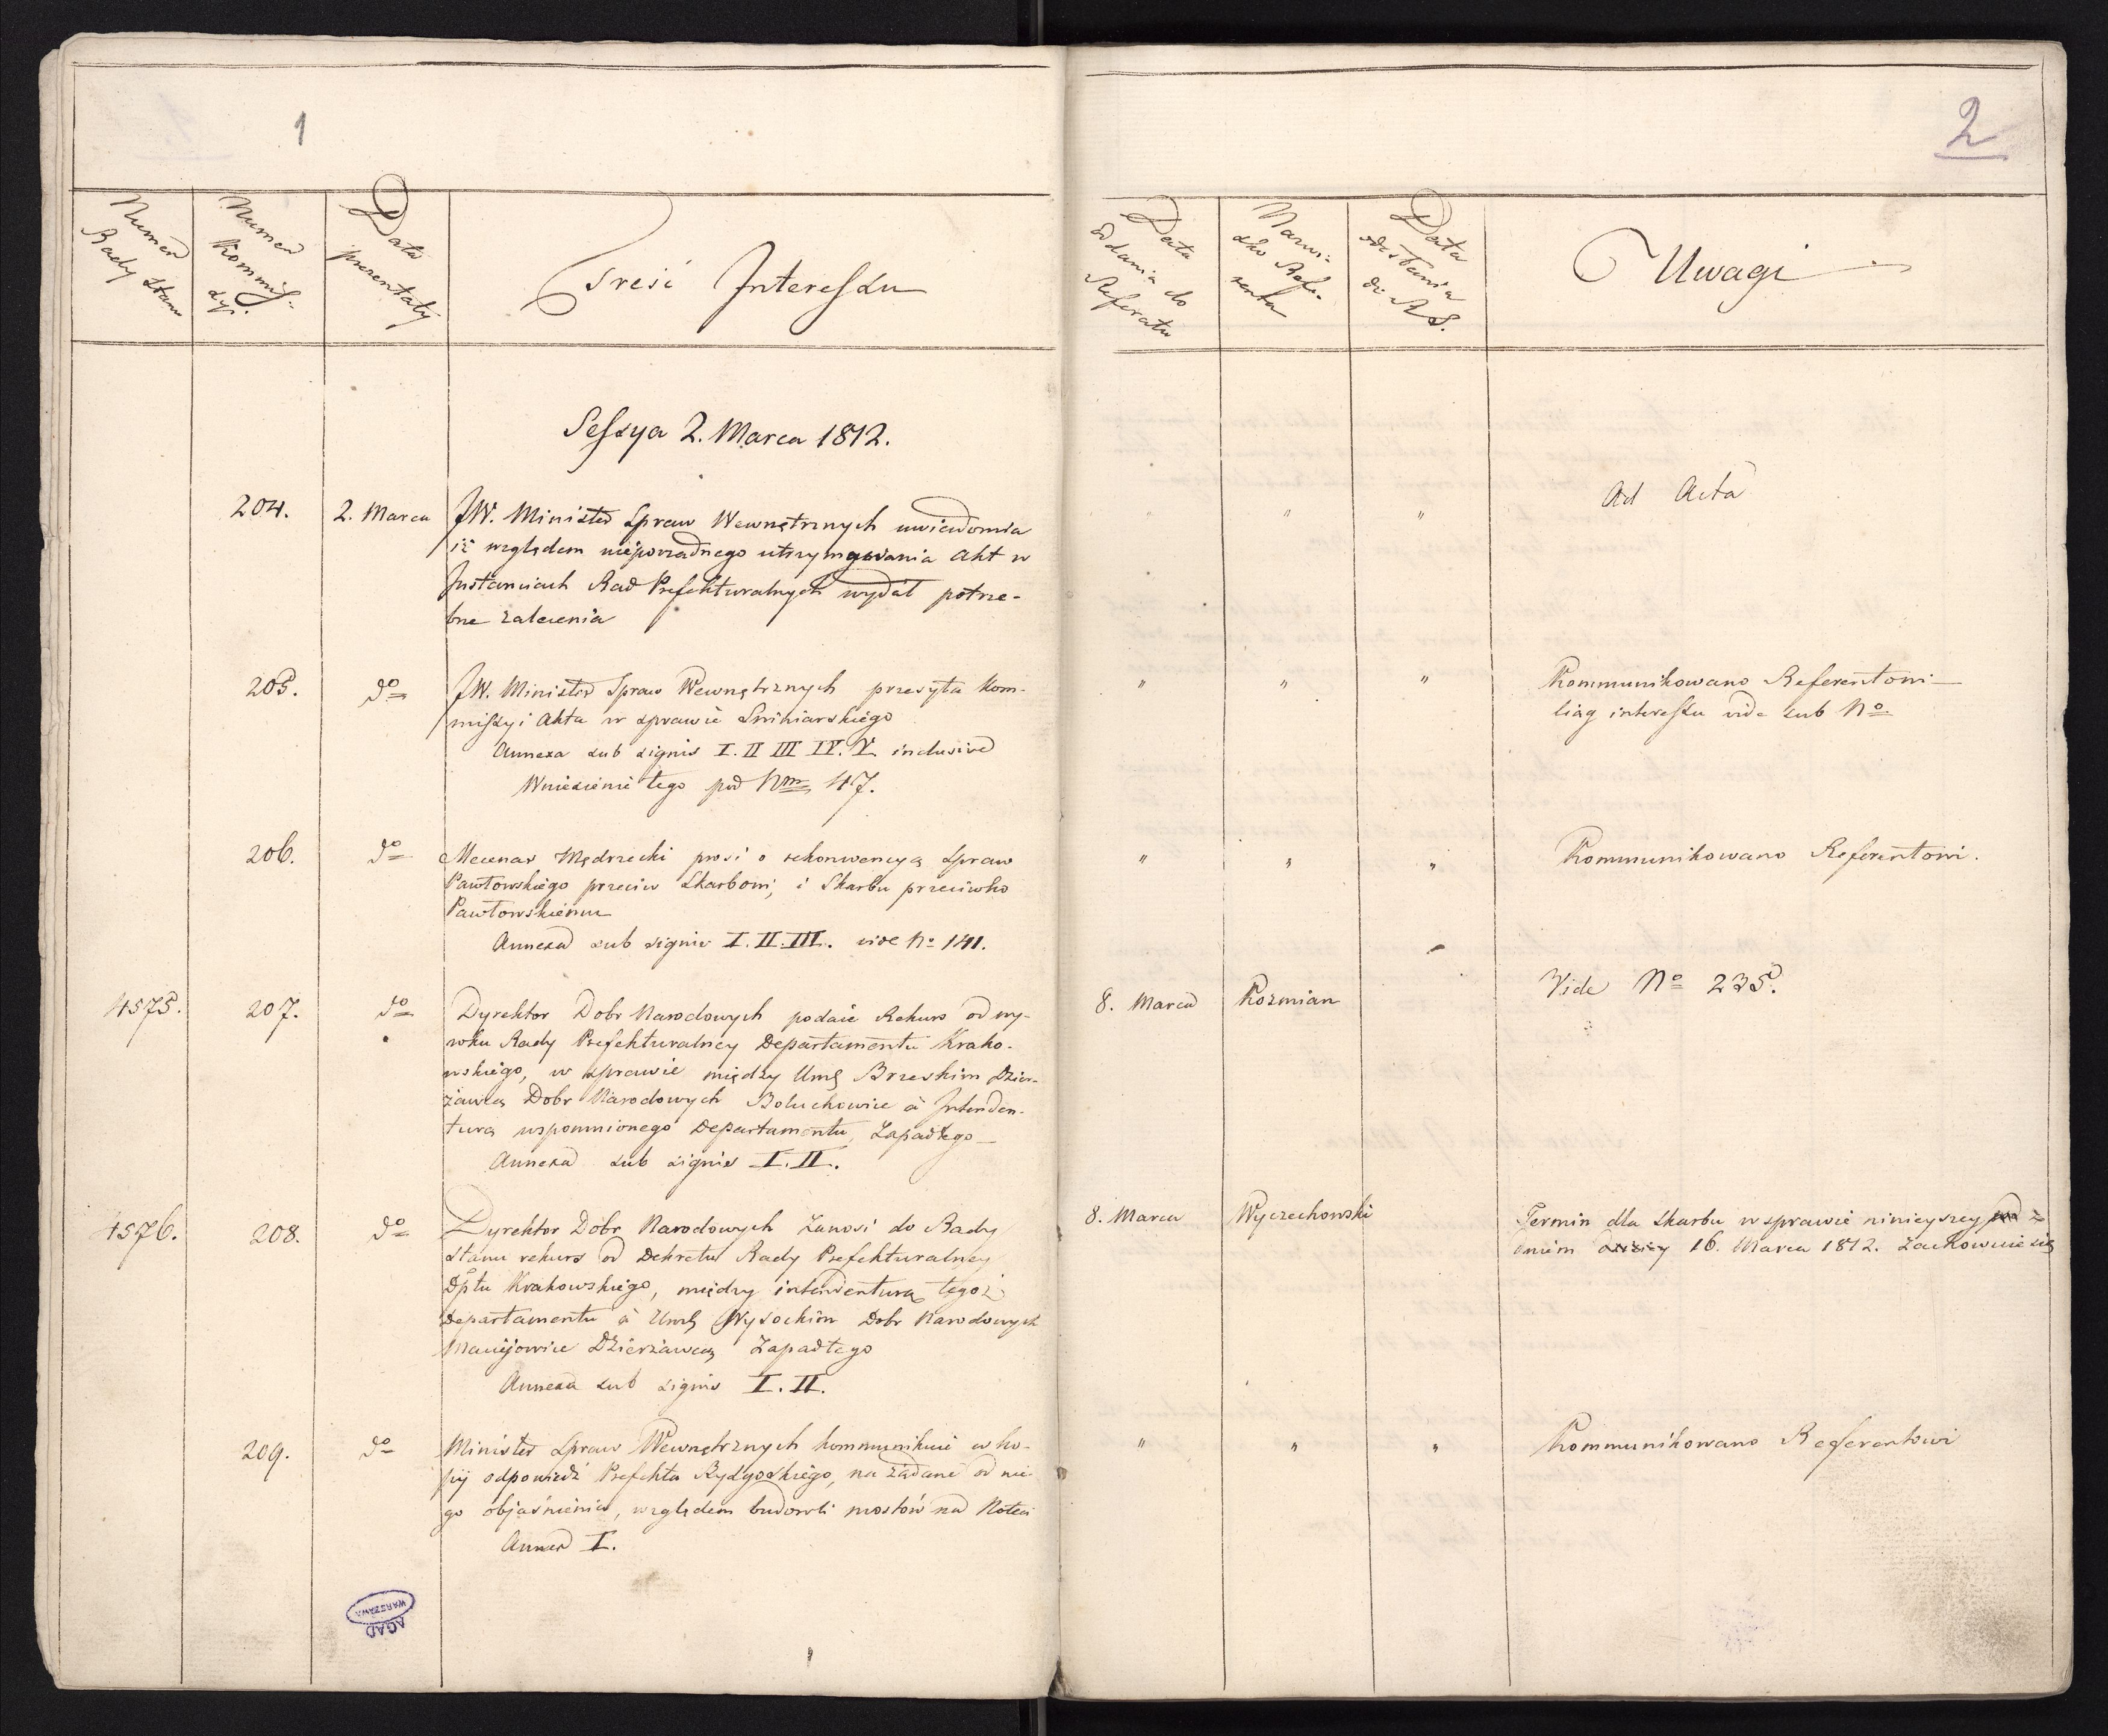 1
2
Numer Rady Stanu
Numer Kommissyi.
Data prezentaty
Treść Interessu
Data oddania do Referatu
Nazwisko Referenta
Data odesłania do R. S.
Uwagi
Sessya 2. Marca 1812.
204. 2. Marca JW. Minister Spraw Wewnętrznych uwiadomia
iż względem nieporządnego utrzymywania Akt w
Instanciach Rad Prefekturalnych wydał potrze-
bne zalecenia
" " " Ad Acta
205. do JW. Minister Spraw Wewnętrznych przesyła Kom-
missyi Akta w sprawie Sniniarskiego
Annexa sub signis I. II III IV. V. inclusive
Wniesienie tego pod Nm 47.
" " " Kommunikowano Referentowi
ciąg interessu vide sub No
206. do Mecenas Mędrzecki prosi o rekonwencyą Spraw
Pawłowskiego przeciw Skarbowi, i Skarbu przeciwko
Pawłowskiemu
Annexa sub signis I. II. III. vide No 141.
" " " Kommunikowano Referentowi.
4575. 207. do Dyrektor Dobr Narodowych podaie Rekurs od wy-
roku Rady Prefekturalney Departamentu Krako-
wskiego, w sprawie między Umę Brzeskim Dzier-
żawcą Dobr Narodowych Boluchowice a Intenden-
turą wspomnionego Departamentu, Zapadłego
Annexa sub signis I. II.
8. Marca Kozmian Vide No 235.
4576. 208. do Dyrektor Dobr Narodowych Zanosi do Rady
Stanu rekurs od Dekretu Rady Prefekturalney
Dptu Krakowskiego, między intendenturą tegoż
Departamentu a Umę Wysockim Dobr Narodowych
Maciejowice Dzierżawcą Zapadłego
Annexa sub signis I. II.
8. Marca Wyczechowski Termin dla Skarbu w sprawie ninieyszey z
dniem 16. Marca 1812. Zachowuie się
209. do Minister Spraw Wewnętrznych kommunikuie w ko-
pij odpowiedź Prefekta Bydgoskiego, na żądane od nie-
go objaśnienia, względem budowli mostów na Noteci
Annex I.
" " " Kommunikowano Referentowi
AGAD
WARSZAWA